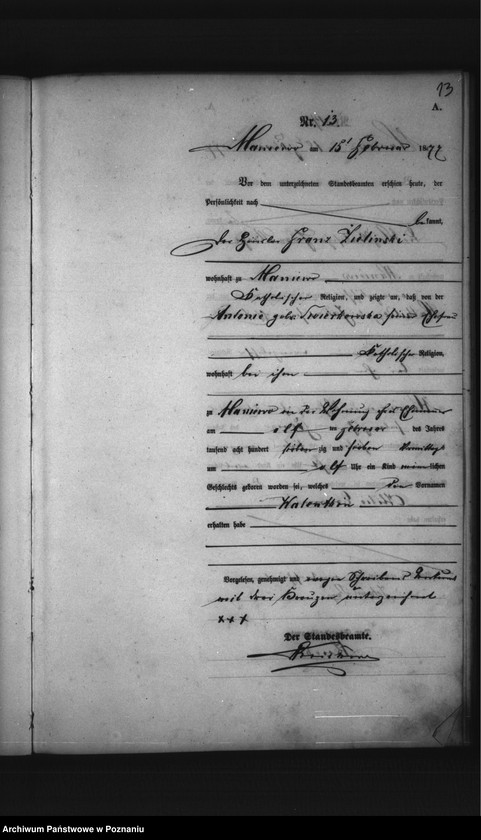 13
A.
Nr. 13.
Maniewo am 15t Februar 1877
Vor dem unterzeichneten Standesbeamten erschien heute, der
Persönlichkeit nach
bekannt,
der Häusler Franz Zielinski
wohnhaft zu Maniewo
Katholischer Religion, und zeigte an, daß von der
Antonie geb. seiner Ehefrau
Katholischer Religion,
wohnhaft bei ihm
zu Maniewo in der Wohnung ihres Ehemannes
am elf ten Februar des Jahres
tausend acht hundert sieben zig und sieben Vormittags
um elf Uhr ein Kind männlichen
Geschlechts geboren worden sei, welches den Vornamen
Valentin
erhalten habe
Vorgelesen, genehmigt und wegen Schreibens
mit drei Kreuzen unterzeichnet
+++
Der Standesbeamte.
Archiwum Państwowe w Poznaniu